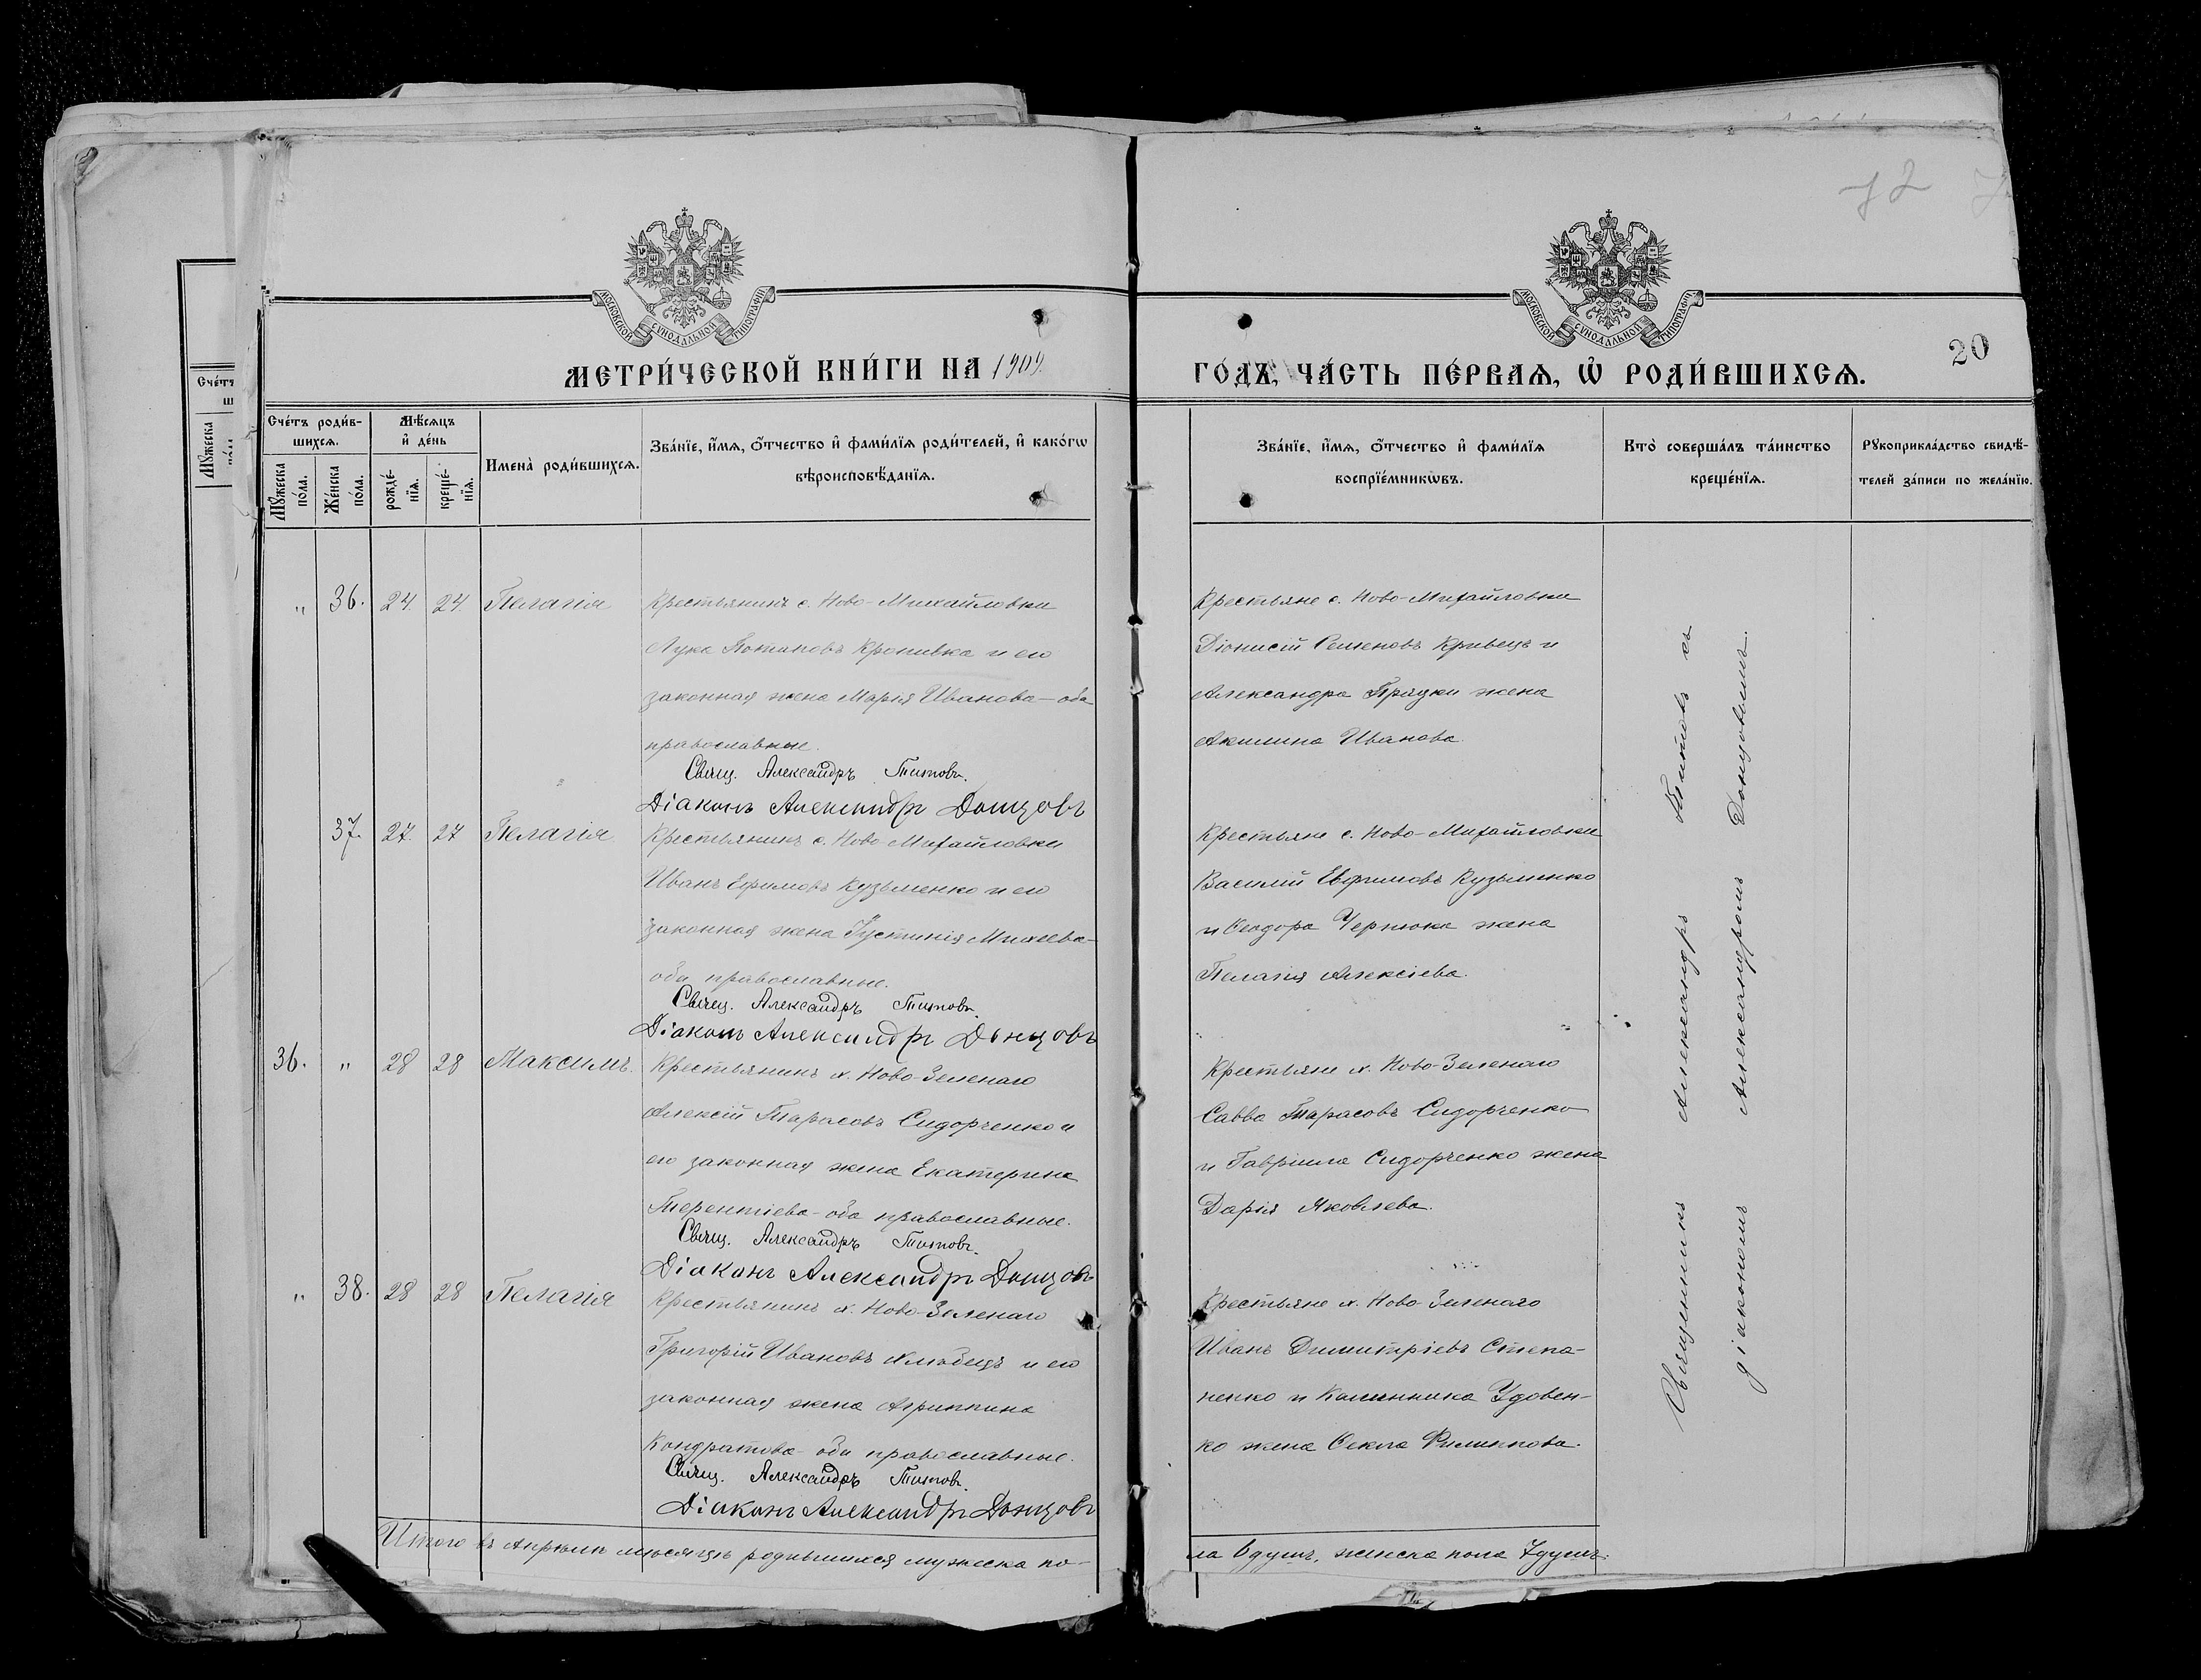 72
МОСКОВСКОЙ СѴНОДАЛЬНОЙ ТИПОГРАФІИ
МОСКОВСКОЙ СѴНОДАЛЬНОЙ ТИПОГРАФІИ
МЕТРИ́ЧЕСКОЙ КНИ́ГИ НА 1909.
ГО́ДЪ, ЧА́СТЬ ПЕ́РВАѦ, Ѡ҆ РОДИ́ВШИХСѦ.
20
Сче́тъ роди́в-
шихсѧ.
Мѹ́жеска по́ла.
Же́нска по́ла.
Мѣ́сѧцъ
и҆ де́нь
рожде́-
нїѧ.
креще́-
нїѧ.
Имена̀ роди́вшихсѧ.
Зва́нїе, и҆́мѧ, ѻ҆́тчество и҆ фами́лїѧ роди́телей, и҆ како́гѡ
вѣроисповѣ́данїѧ.
Зва́нїе, и҆́мѧ, ѻ҆́тчество и҆ фами́лїѧ
воспрїе́мникѡвъ.
Кто̀ соверша́лъ та́инство
креще́нїѧ.
Рꙋкоприкла́дство свидѣ́-
телей за́писи по жела́нїю.
„ 36. 24. 24. Пелагія
Крестьянинъ с. Ново-Михайловки
Лука Потаповъ Кропивка и его
законная жена Марія Иванова – оба
православные.
Свящ. Александръ Титовъ.
Діаконъ Александръ Донцовъ
Крестьяне с. Ново-Михайловки
Діонисій Семеновъ Кривецъ и
Александра Прядки жена
Акилина Иванова.
37. 27. 27 Пелагія
Крестьянинъ с. Ново-Михайловки
Иванъ Ефимовъ Кузьменко и его
законная жена Іустинія Михеева –
оба православные.
Свящ. Александръ Титовъ.
Діаконъ Александръ Донцовъ
Крестьяне с. Ново-Михайловки
Василій Евфимовъ Кузьменко
и Ѳеодора Чернюка жена
Пелагія Алексіева.
36. „ 28 28 Максимъ.
Крестьянинъ х. Ново-Зеленаго
Алексій Тарасовъ Сидорченко и
его законная жена Екатерина
Терентіева – оба православные.
Свящ. Александръ Титовъ.
Діаконъ Александръ Донцовъ
Крестьяне х. Ново-Зеленаго
Савва Тарасовъ Сидорченко
и Гавріила Сидорченко жена
Дарія Яковлева.
„ 38. 28 28 Пелагія
Крестьянинъ х. Ново-Зеленаго
Григорій Ивановъ и его
законная жена Агриппина
Кондратова – оба православные.
Свящ. Александръ Титовъ.
Діаконъ Александръ Донцовъ
Крестьяне х. Ново-Зеленаго
Иванъ Димитріевъ Степа-
ненко и Калинника Удовен-
ко жена Ѳекла Филиппова.
Священникъ Александръ Титовъ съ
діакономъ Александромъ Донцовымъ.
Итого въ Апрѣлѣ мѣсяцѣ родившихся мужеска по-
ла душъ, женска пола 7 душъ.
Сче́тъ
Мѹ́жеска